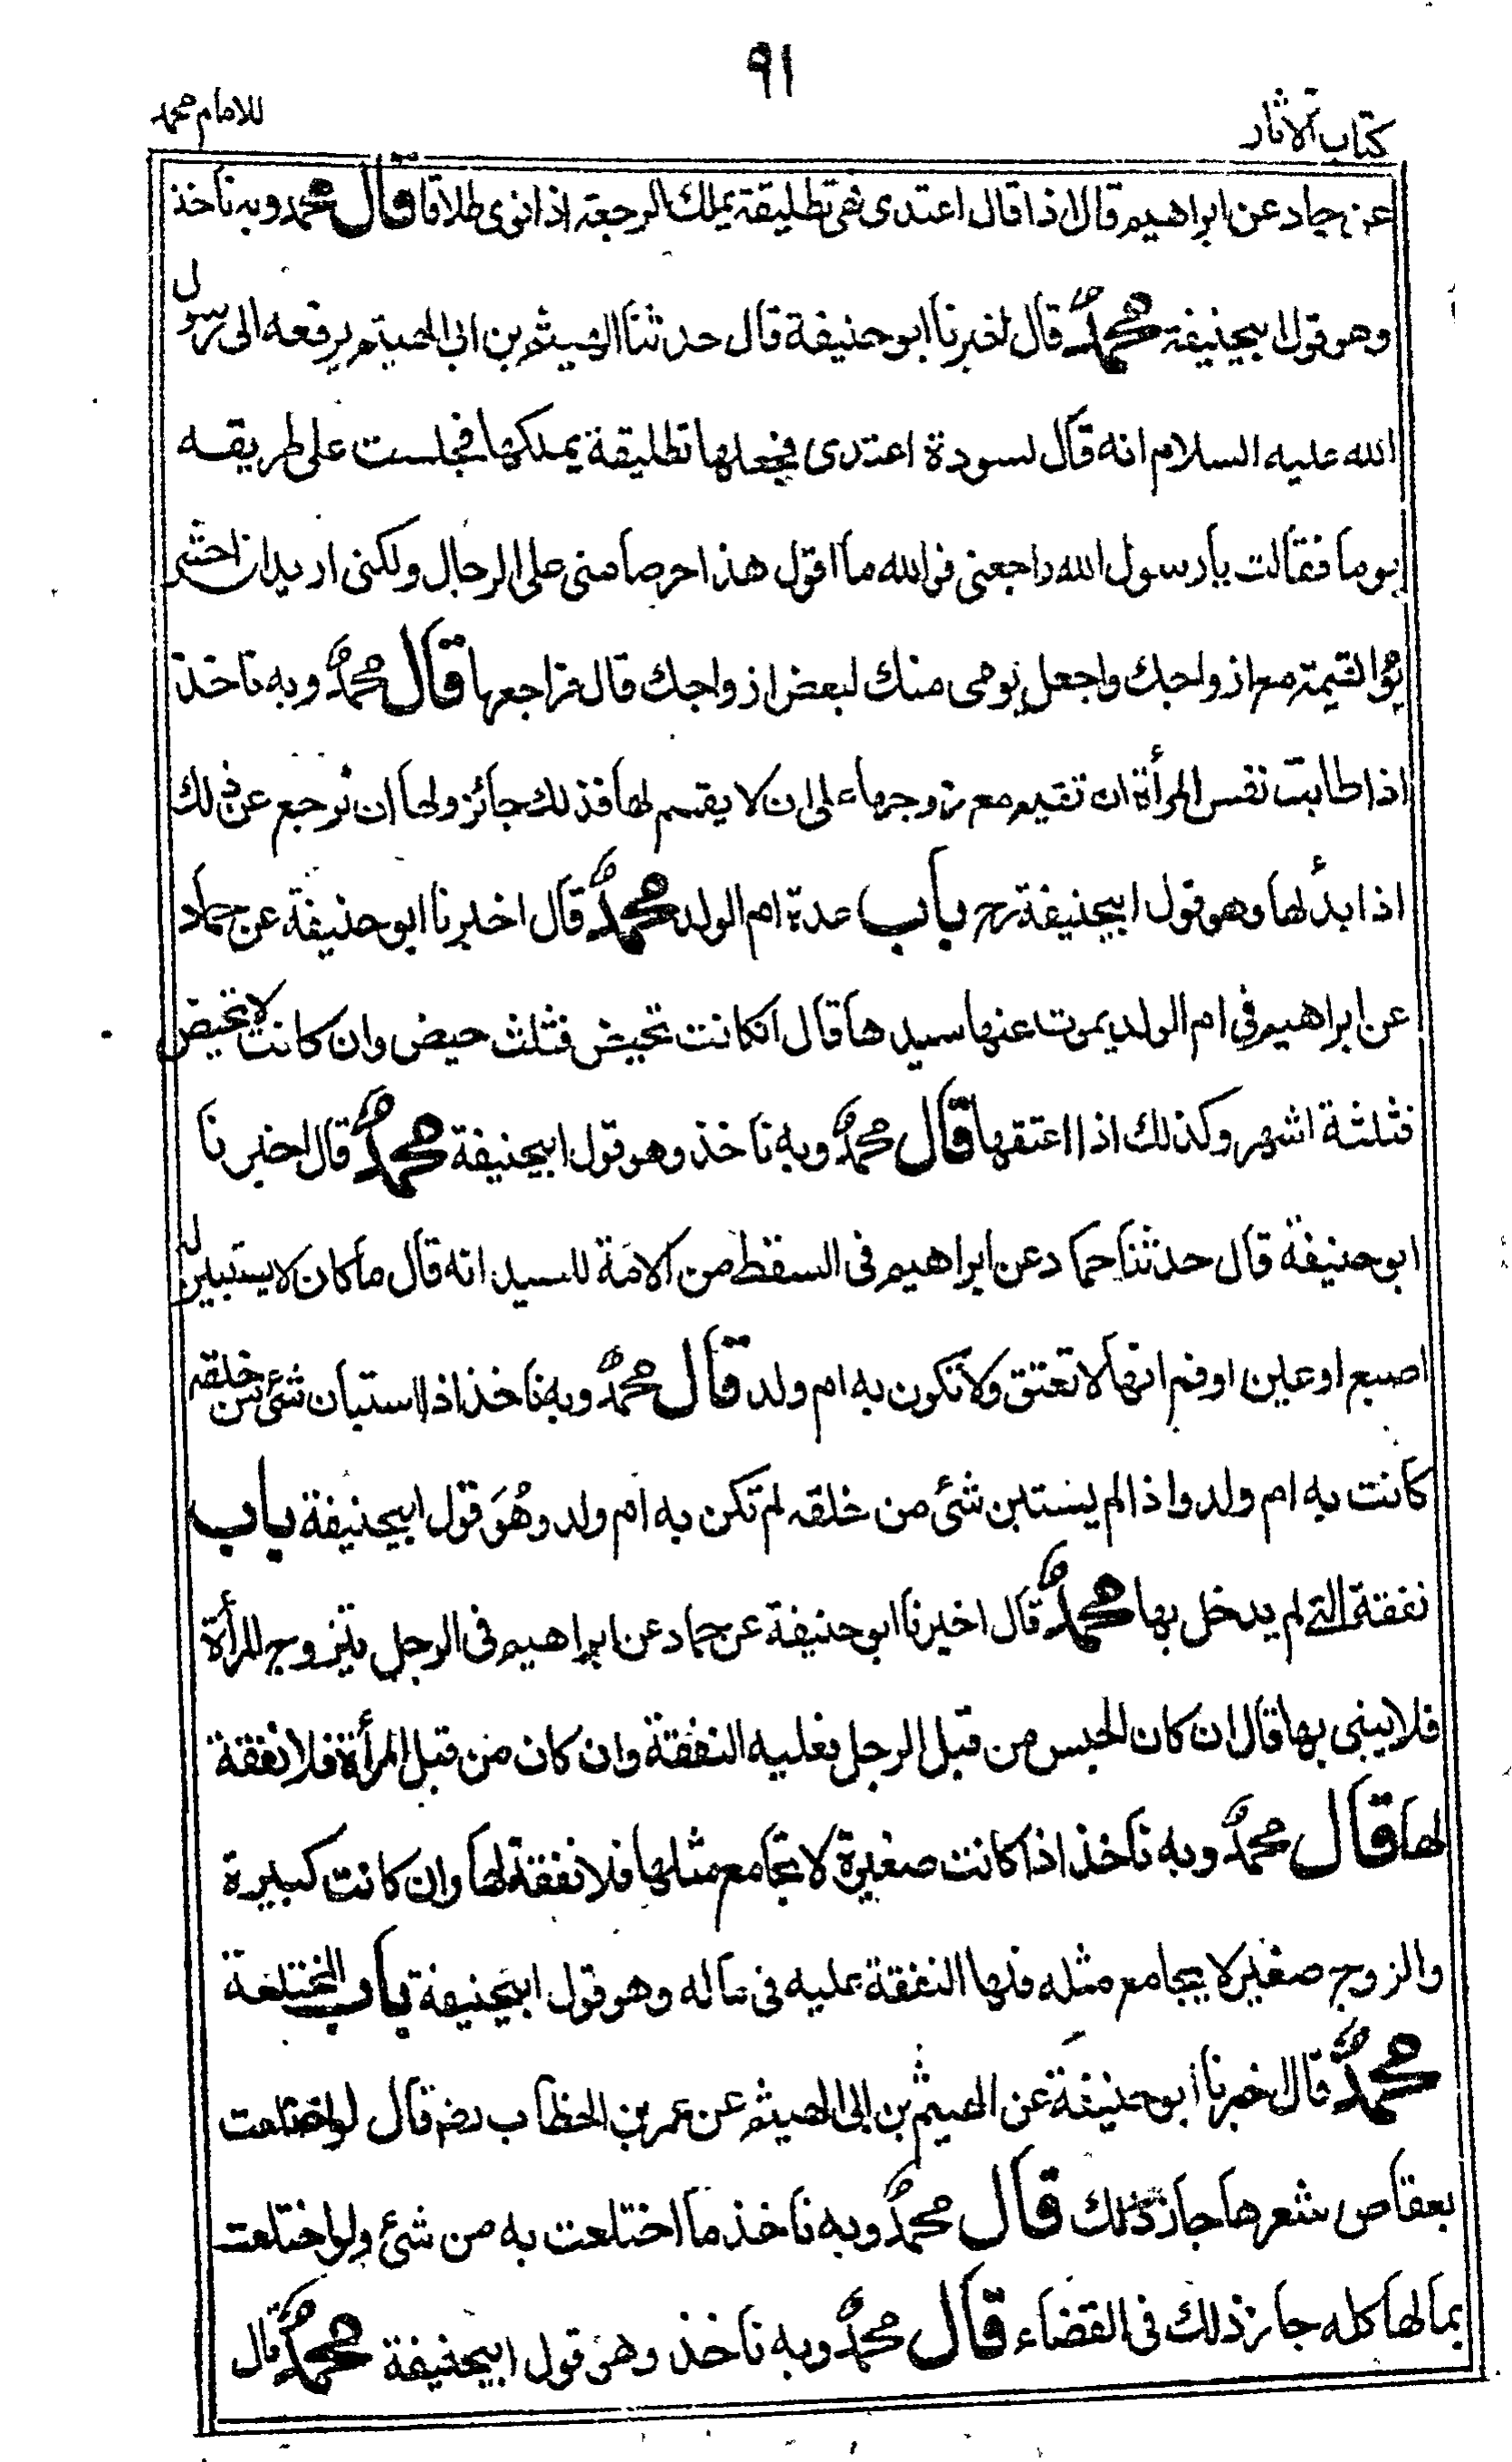 ٩١
كتاب الآثار
للامام محمد
عن حماد عن ابراهيم قال اذا قال اعتدى فهى تطليقة يملك الرجعة اذا نوى طلاقا قال محمد وبه ناخذ
وهو قول ابيحنيفة محمدٌ قال اخبرنا ابو حنيفة قال حدثنا الهيثم بن ابى الهيثم يرفعه الى رسول
الله عليه السلام انه قال لسودة اعتدى فجعلها تطليقة يملكها فجلست على طريقه
يوما فقالت يا رسول الله راجعنى فوالله ما اقول هذا حرصا منى على الرجال ولكنى اريد ان احشر
يوم القيمة مع ازواجك واجعل يومى منك لبعض ازواجك قال فراجعها قال محمدٌ وبه ناخذ
اذا طابت نفس المرأة ان تقيم مع زوجها على ان لا يقسم لها فذلك جائز ولها ان ترجع عن ذلك
اذا بدأ لها وهو قول ابيحنيفة رح باب عدة ام الولد محمدٌ قال اخبرنا ابو حنيفة عن حماد
عن ابراهيم فى ام الولد يموت عنها سيدها قال انكانت تحيض فثلث حيض وان كانت لا تحيض
فثلثة اشهر وكذلك اذا اعتقها قال محمدٌ وبه ناخذ وهو قول ابيحنيفة محمدٌ قال اخبرنا
ابو حنيفة قال حدثنا حماد عن ابراهيم فى السقط من الامة للسيد انه قال ما كان لا يستبين له
اصبع او عين او فم انها لا تعتق ولا تكون به ام ولد قال محمدٌ وبه ناخذ اذا استبان شئ من خلقه
كانت به ام ولد واذا لم يستبن شئ من خلقه لم تكن به ام ولد وهُوَ قول ابيحنيفة باب
نفقة التى لم يدخل بها محمدٌ قال اخبرنا ابو حنيفة عن حماد عن ابراهيم فى الرجل يتزوج المرأة
فلا يبنى بها قال ان كان الحبس من قبل الرجل فعليه النفقة وان كان من قبل المرأة فلا نفقة
لها قال محمدٌ وبه ناخذ اذا كانت صغيرة لا تجامع مثلها فلا نفقة لها وان كانت كبيرة
والزوج صغير لا يجامع مثله فلها النفقة عليه فى ماله وهو قول ابيحنيفة باب المختلعة
محمدٌ قال اخبرنا ابو حنيفة عن الهيثم بن ابى الهيثم عن عمر بن الخطاب رضه قال لو اختلعت
بعقاص شعرها جاز ذلك قال محمدٌ وبه ناخذ ما اختلعت به من شئ ولو اختلعت
بمالها كله جاز ذلك فى القضاء قال محمدٌ وبه ناخذ وهو قول ابيحنيفة محمدٌ قال